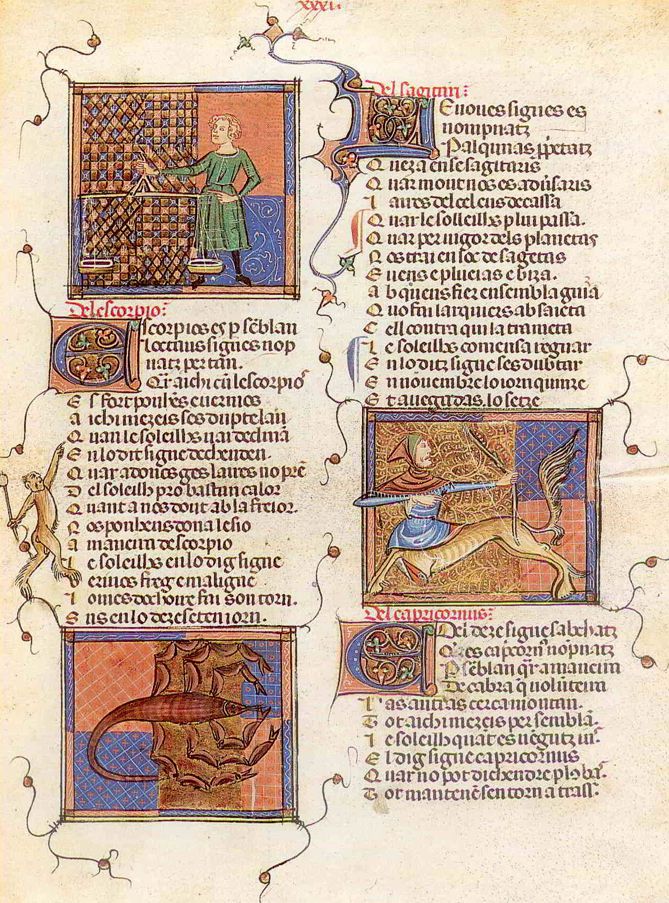 XXXII
Del escorpio:
Escorpios es p semblan
loctaus signes nop
natz per tan.
Quaichi cū lescorpios
Es fort ponhēs everinos
aichi mezeis ses dup telan
Quan le soleilhs uai declinā
En lo dit signe dechenden.
Quar adoncs ges laires no prē
Del soleilh pro bastan calor
Quant a nos dont ab la freior.
Nos ponhens dona lesio
a maneira descorpio
le soleilhs en lo dig signe
e maligne
son torn.
Ens en lo dezeseten iorn.
Del sagitari:
E noues signes es
nompnatz
Quez a ense sagitaris
Quar mout nos es aduersaris
laires del cel ens decassa
Quar le solleilhs plui passa.
Quar per uigor dels planetas
Nos trai en loc de sagetas
E uens e plueias e biza.
ab quens fier ensembla guia
Quo fai larquiers ab saieta
Cell contra qui la trameta
le soleilhs comensa regnar
En lo ditz signe ses duptar
En nouembre lo iorn quinze
Et auegadas. lo setze
Del capricornus:
Dei dezе signe sabchatz
Que es capcorn nopnatz
P semblan qar a maneira
De cabra q uolunteira
las autras cerca montan.
Tot aichi mezeis per semblā.
le soleilh quāt es uengutz
El dig signe capricornus
Quar no pot dichendre pl9 bas.
Tot mantenē sen torn a tras.